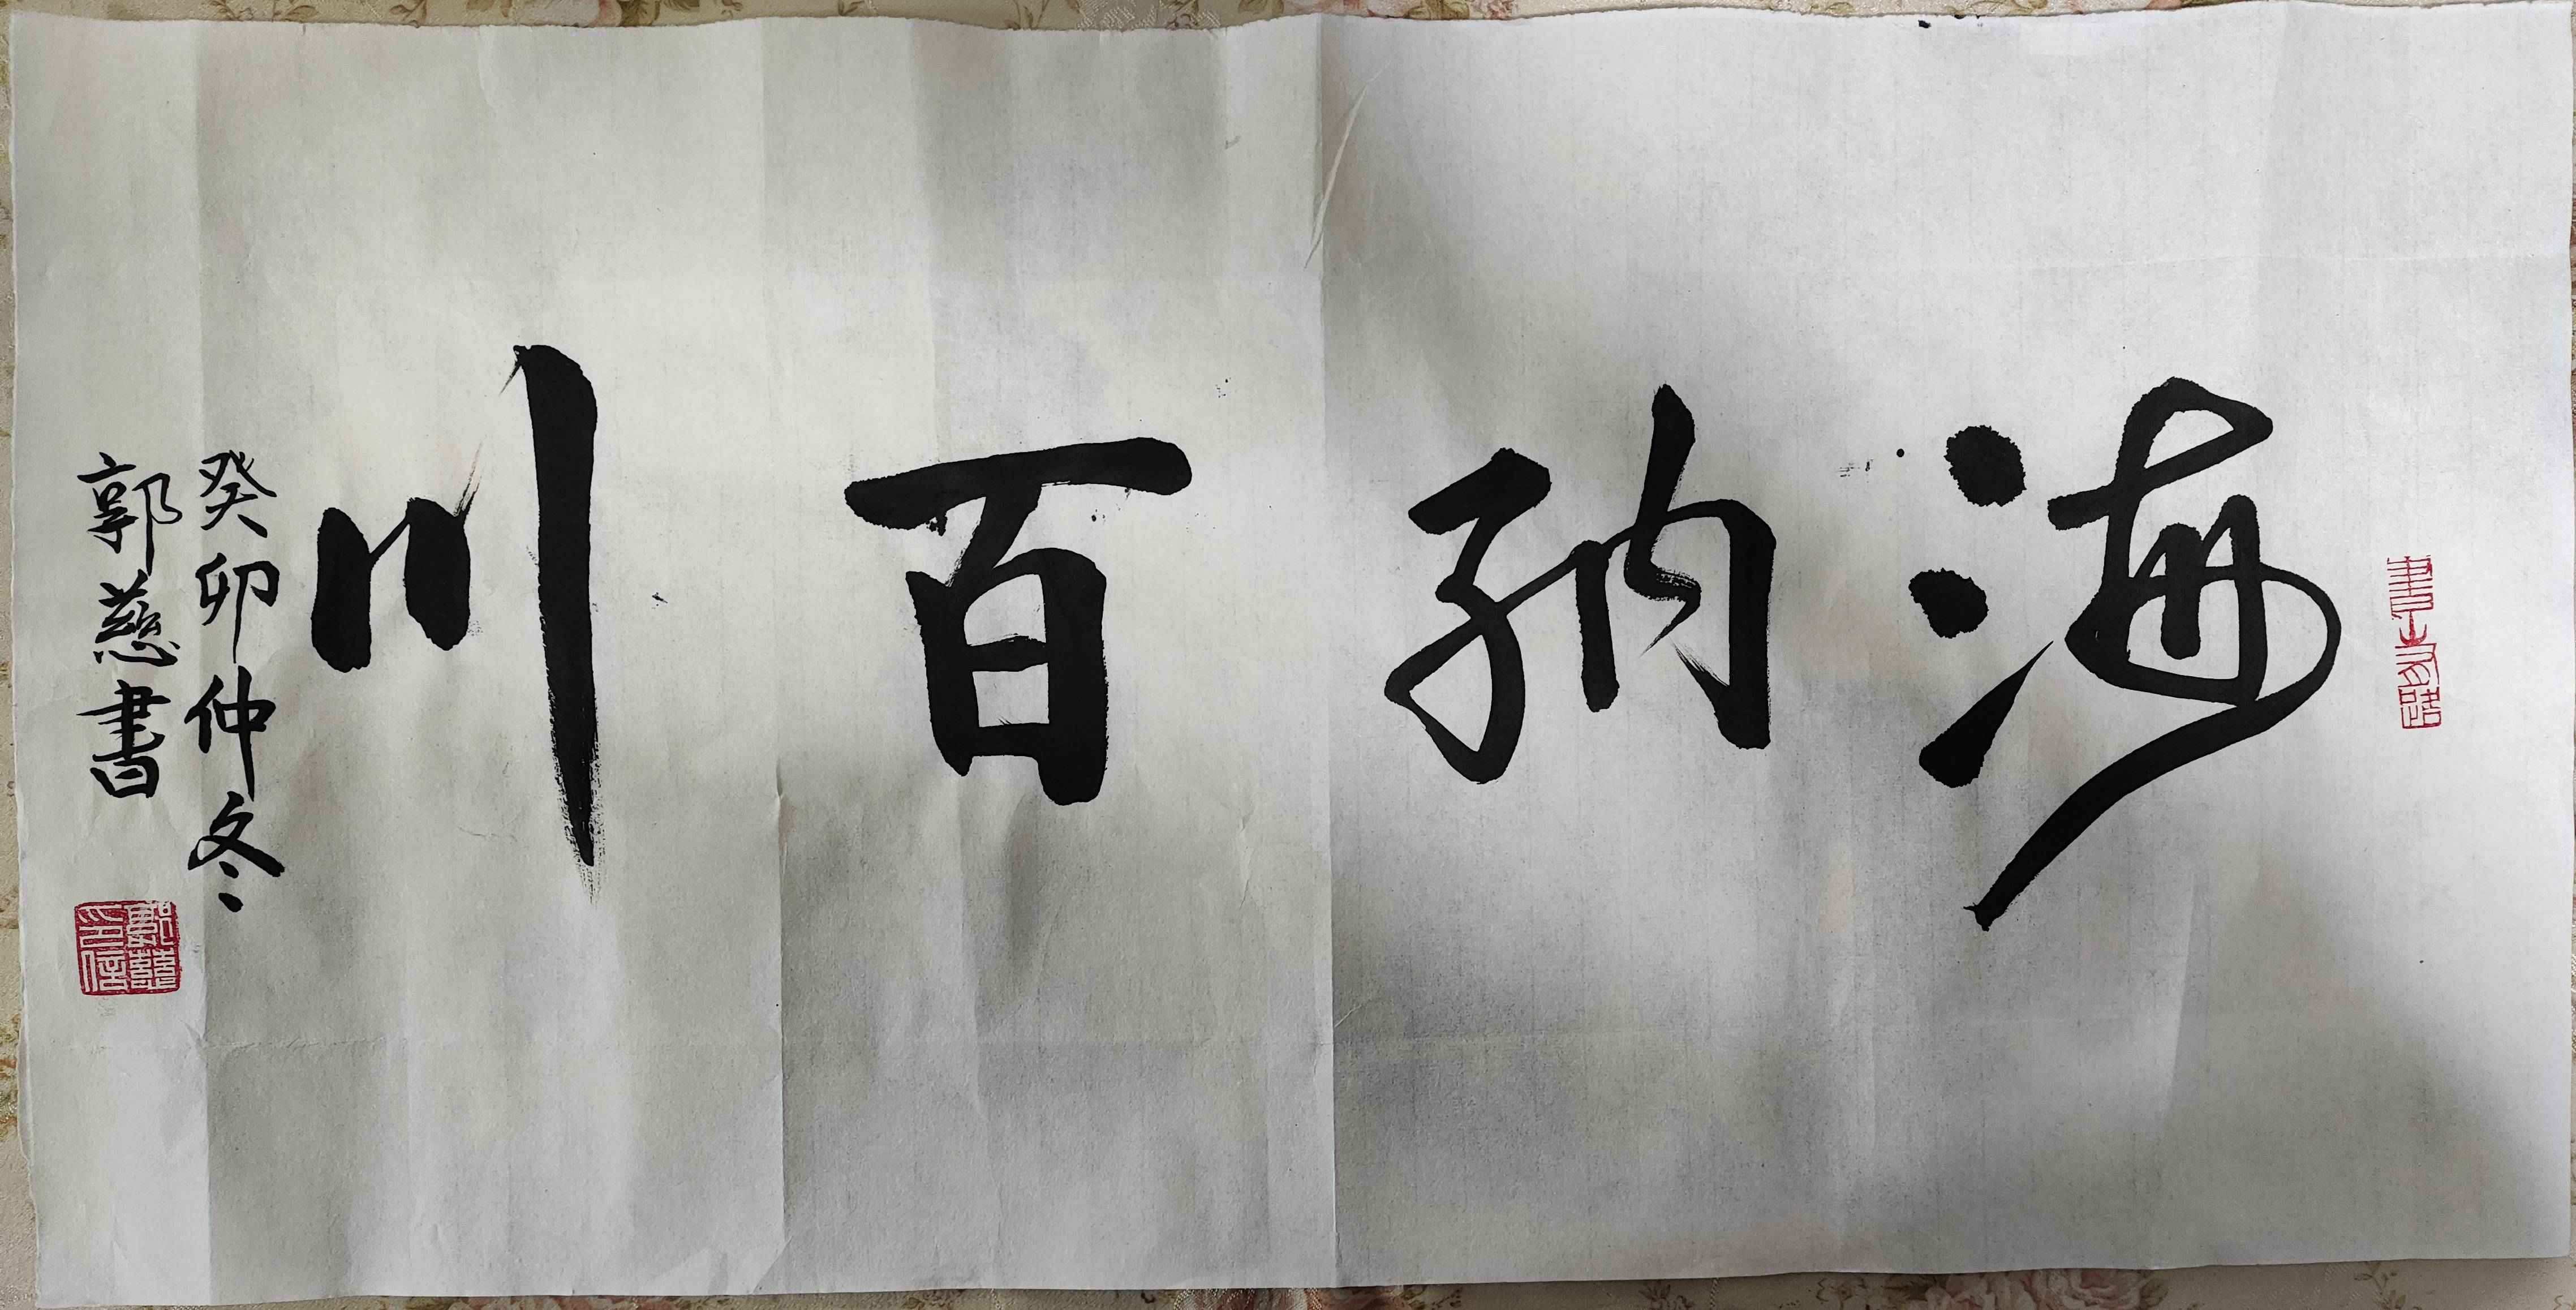 海納百川
癸卯仲冬
郭慈書